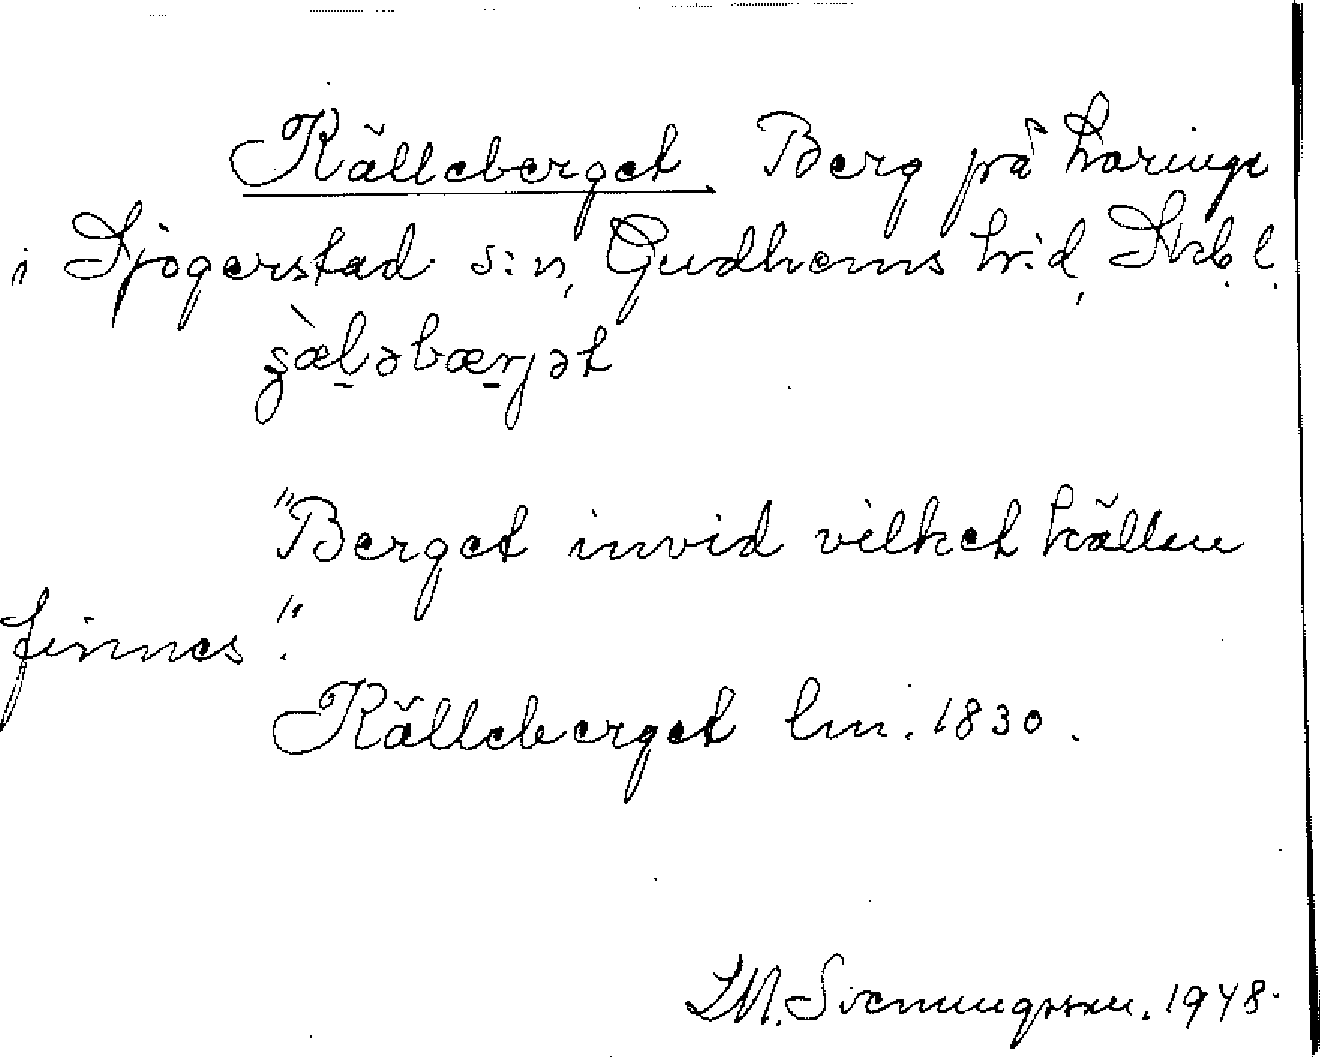 Källeberget. Berg på Loringe
i Sjogerstad s:n, Gudhems h:d, Skb. l.
"Berget invid vilket källan
finnes".
Källeberget lm. 1830.
I.M. Svenungsson. 1948.